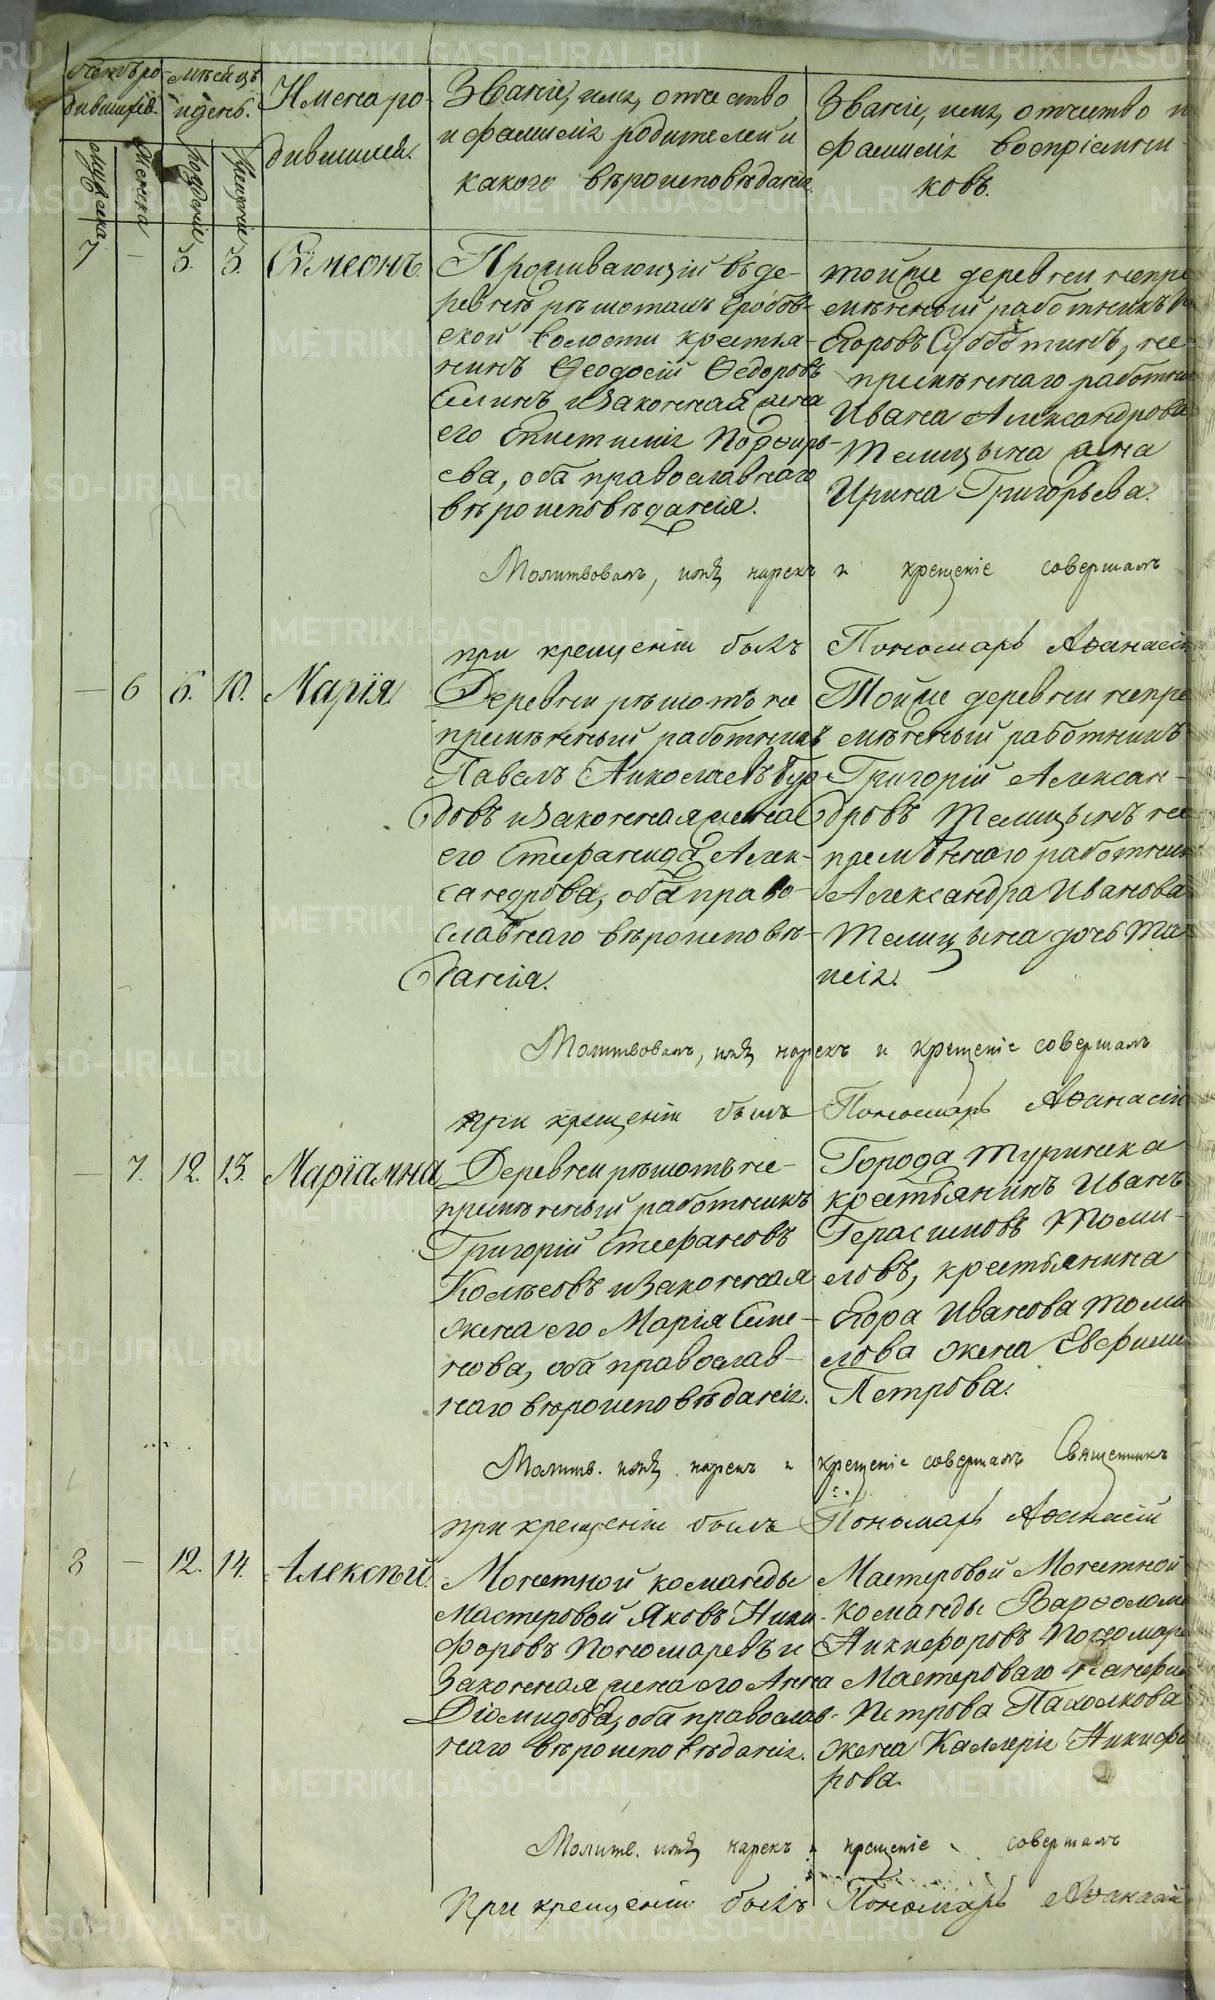 Счетъ ро-
дившихся.
Мѣсяцъ
и день.
Мужеска
Женска
Рожденiя
Крещенiя
Имена ро-
дившихся.
Званiе, имя, отчество
и фамилiя родителей и
какого вѣроисповѣданiя.
Званiе, имя, отчество и
фамилiя воспрiемни-
ковъ.
7 — 5. 5. Сѵмеонъ.
Проживающiй въ де-
ревнѣ рѣшотахъ Гробов-
ской волости крестья-
нинъ Ѳеодосiй Ѳедоровъ
и законная жена
его Епистимiя Порфирь-
ева, оба православнаго
вѣроисповѣданiя.
Тойже деревни непре
мѣнный работникъ
Егоровъ Субботинъ, не-
премѣннаго работни
Ивана Александрова
Телицына жена
Ирина Григорьева.
Молитвовалъ, имя нарекъ и крещенiе совершалъ
при крещенiи былъ Пономарь Аѳанасiй
— 6 6. 10. Марiя
Деревни рѣшотъ не
премѣнный работникъ
Павелъ Николаевъ
довъ и законная жена
его Стефанида Алек-
сандрова, оба право-
славнаго вѣроисповѣ-
данiя.
Тойже деревни непре
мѣнный работникъ
Григорiй Алексан-
дровъ Телицынъ не
премѣннаго работник
Александра Иванова
Телицына дочь Та
исiя.
Молитвовалъ, имя нарекъ и крещенiе совершалъ
при крещенiи былъ Пономарь Аѳанасiй
— 7. 12. 13. Марiамна
Деревни рѣшотъ не-
премѣнный работникъ
Григорiй Стефановъ
и законная
жена его Марiя Семе-
нова, оба православ-
наго вѣроисповѣданiя.
Города Туринска
крестьянинъ Иванъ
Герасимовъ Томи-
ловъ, крестьянина
Егора Иванова Томи
лова жена Евфими
Петрова.
Молитв. имя нарекъ и крещенiе совершалъ Священникъ
при крещенiи былъ Пономарь Аѳанасiй
8 — 12. 14. Алексѣй.
Монетной команды
Мастеровой Яковъ Ники-
форовъ Пономаревъ и
законная жена его Анна
Дiомидова, оба православ-
наго вѣроисповѣданiя.
Мастеровой Монетной
команды Варѳоломе
Никифоровъ Пономаре
Мастероваго
Петрова Пахолкова
жена Каллерiя Никифо
рова.
Молитв. имя нарекъ и крещенiе совершалъ
При крещенiи былъ Пономарь Аѳанасiй
METRIKI.GASO-URAL.RU